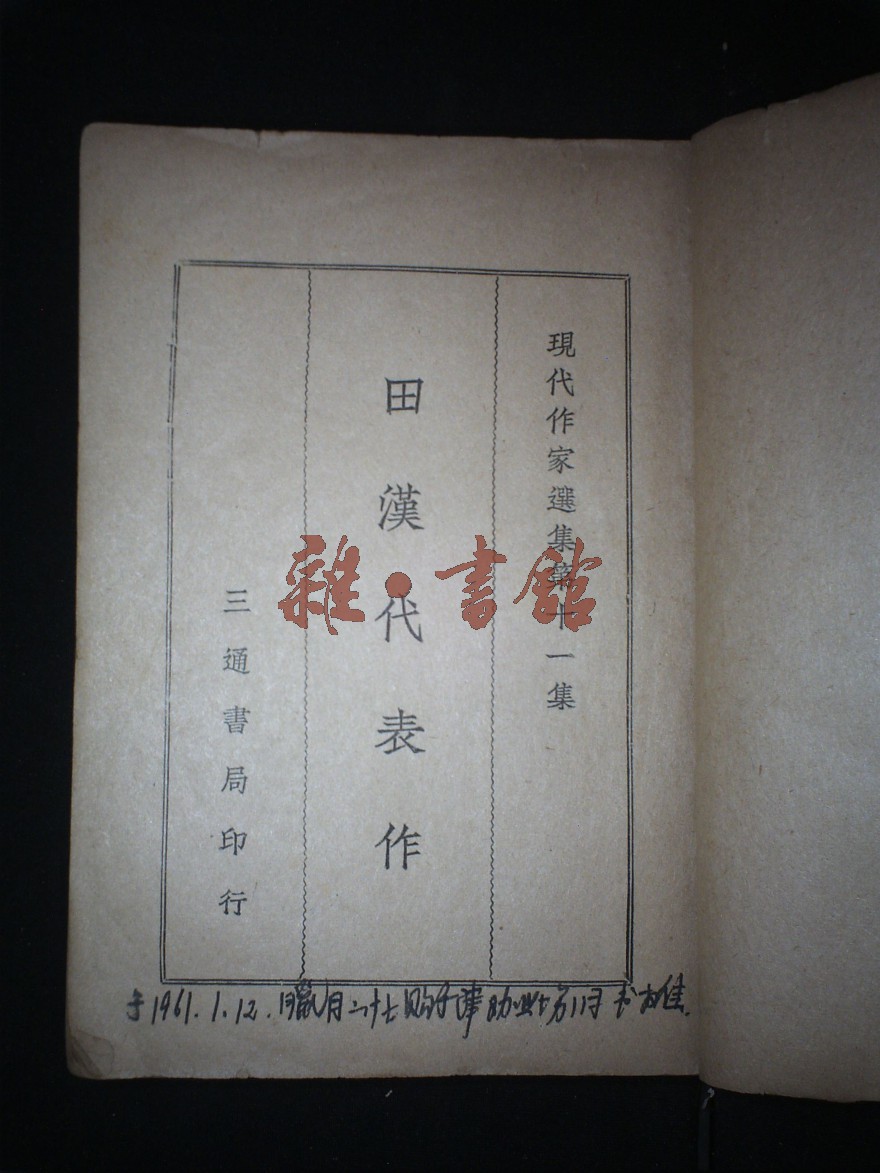 現代作家選集第十一集
田漢代表作
三通書局印行
雜·書館
于1961.1.12.腊月二十七购于津